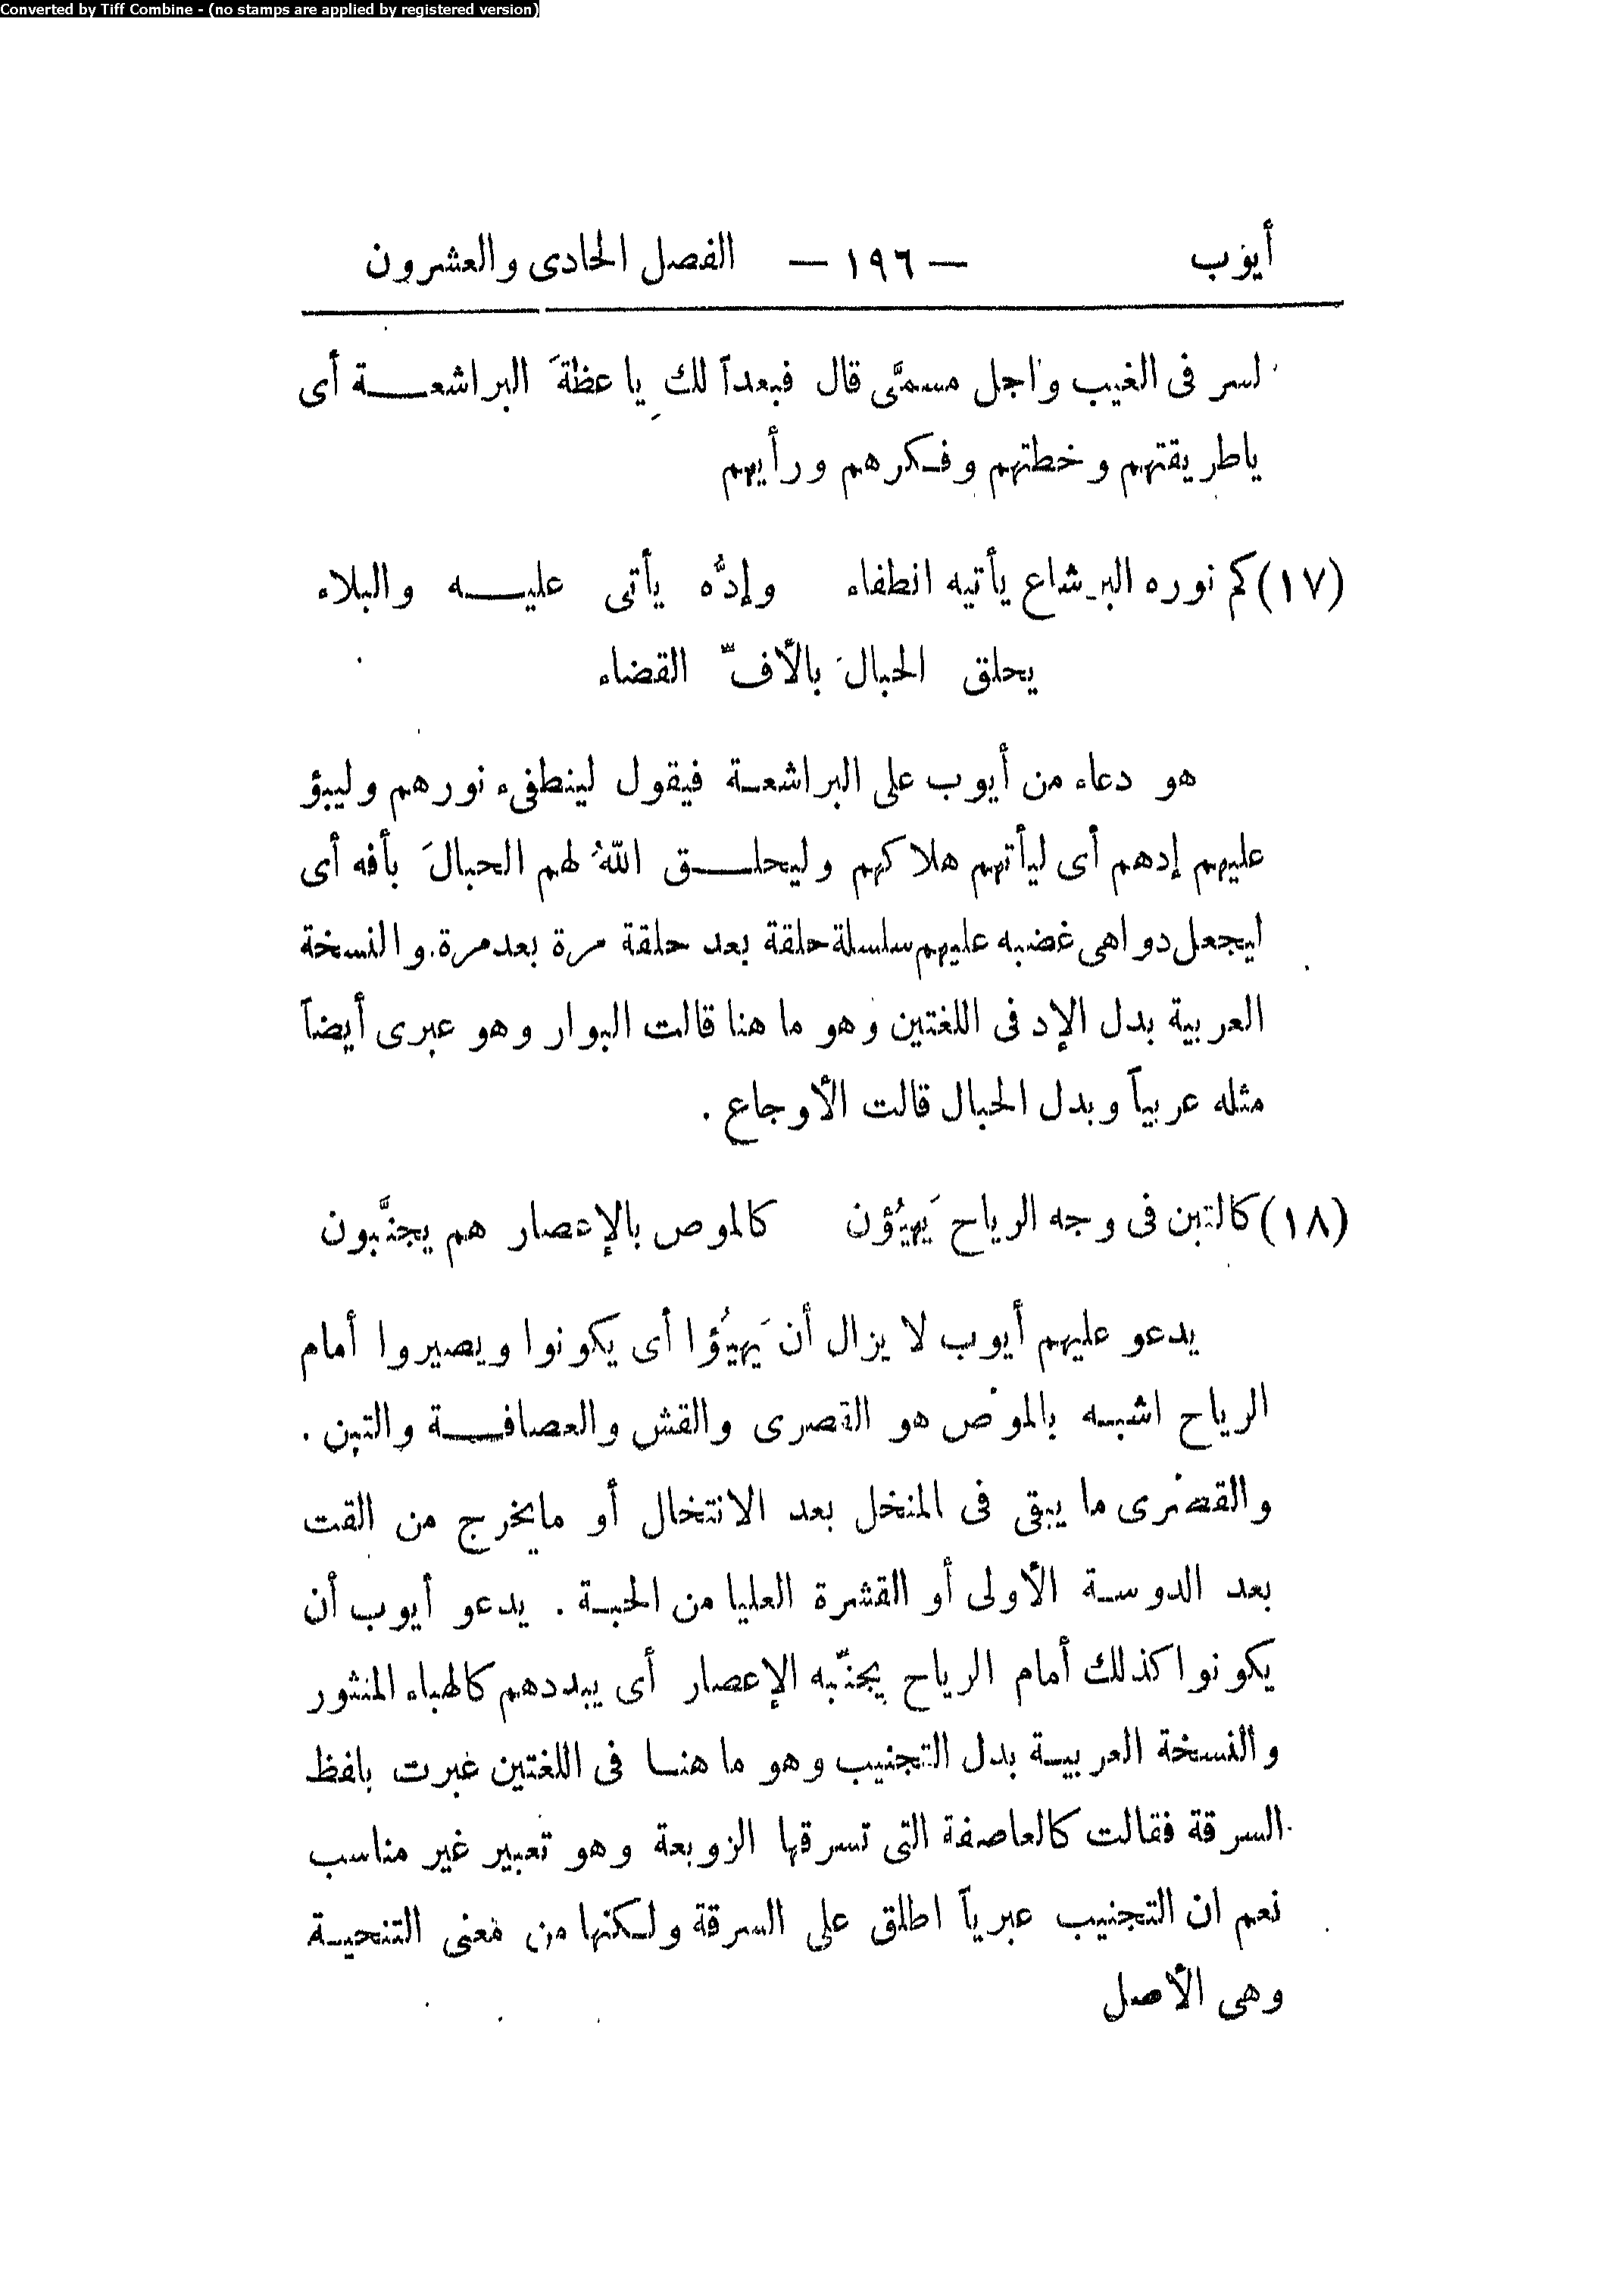 Converted by Tiff Combine - (no stamps are applied by registered version)
أيوب — ١٩٦ — الفصل الحادى والعشرون
لسر فى الغيب واجل مسمَّى قال فبعداً لكِ يا عظةَ البراشعة أى
ياطريقتهم وخطتهم وفكرهم ورأيهم
(١٧) كم نوره البرشاع يأتيه انطفاء وإدُّه يأتى عليه والبلاء
يحلق الحبالَ بالأفّ القضاء
هو دعاء من أيوب على البراشعة فيقول لينطفىء نورهم وليبؤ
عليهم إدهم أى ليأتهم هلاكهم وليحلق اللهُ لهم الحبالَ بأفه أى
ليجعل دواهى غضبه عليهم سلسلة حلقة بعد حلقة مرة بعد مرة. والنسخة
العربية بدل الإد فى اللغتين وهو ما هنا قالت البوار وهو عبرى أيضاً
مثله عربياً وبدل الحبال قالت الأوجاع .
(١٨) كالتبن فى وجه الرياح يَهيُؤن كالموص بالإعصار هم يجنَّبون
يدعو عليهم أيوب لا يزال أن يَهيُؤا أى يكونوا ويصيروا أمام
الرياح اشبه بالموص هو القصرى والقش والعصافة والتبن .
والقصرى ما يبقى فى المنخل بعد الانتخال أو مايخرج من القت
بعد الدوسة الأولى أو القشرة العليا من الحبة . يدعو أيوب أن
يكونوا كذلك أمام الرياح يجنّبه الإعصار أى يبددهم كالهباء المنثور
والنسخة العربية بدل التجنيب وهو ما هنا فى اللغتين عبرت بلفظ
السرقة فقالت كالعاصفة التى تسرقها الزوبعة وهو تعبير غير مناسب
نعم ان التجنيب عبرياً اطلق على السرقة ولكنها من معنى التنحية
وهى الأصل